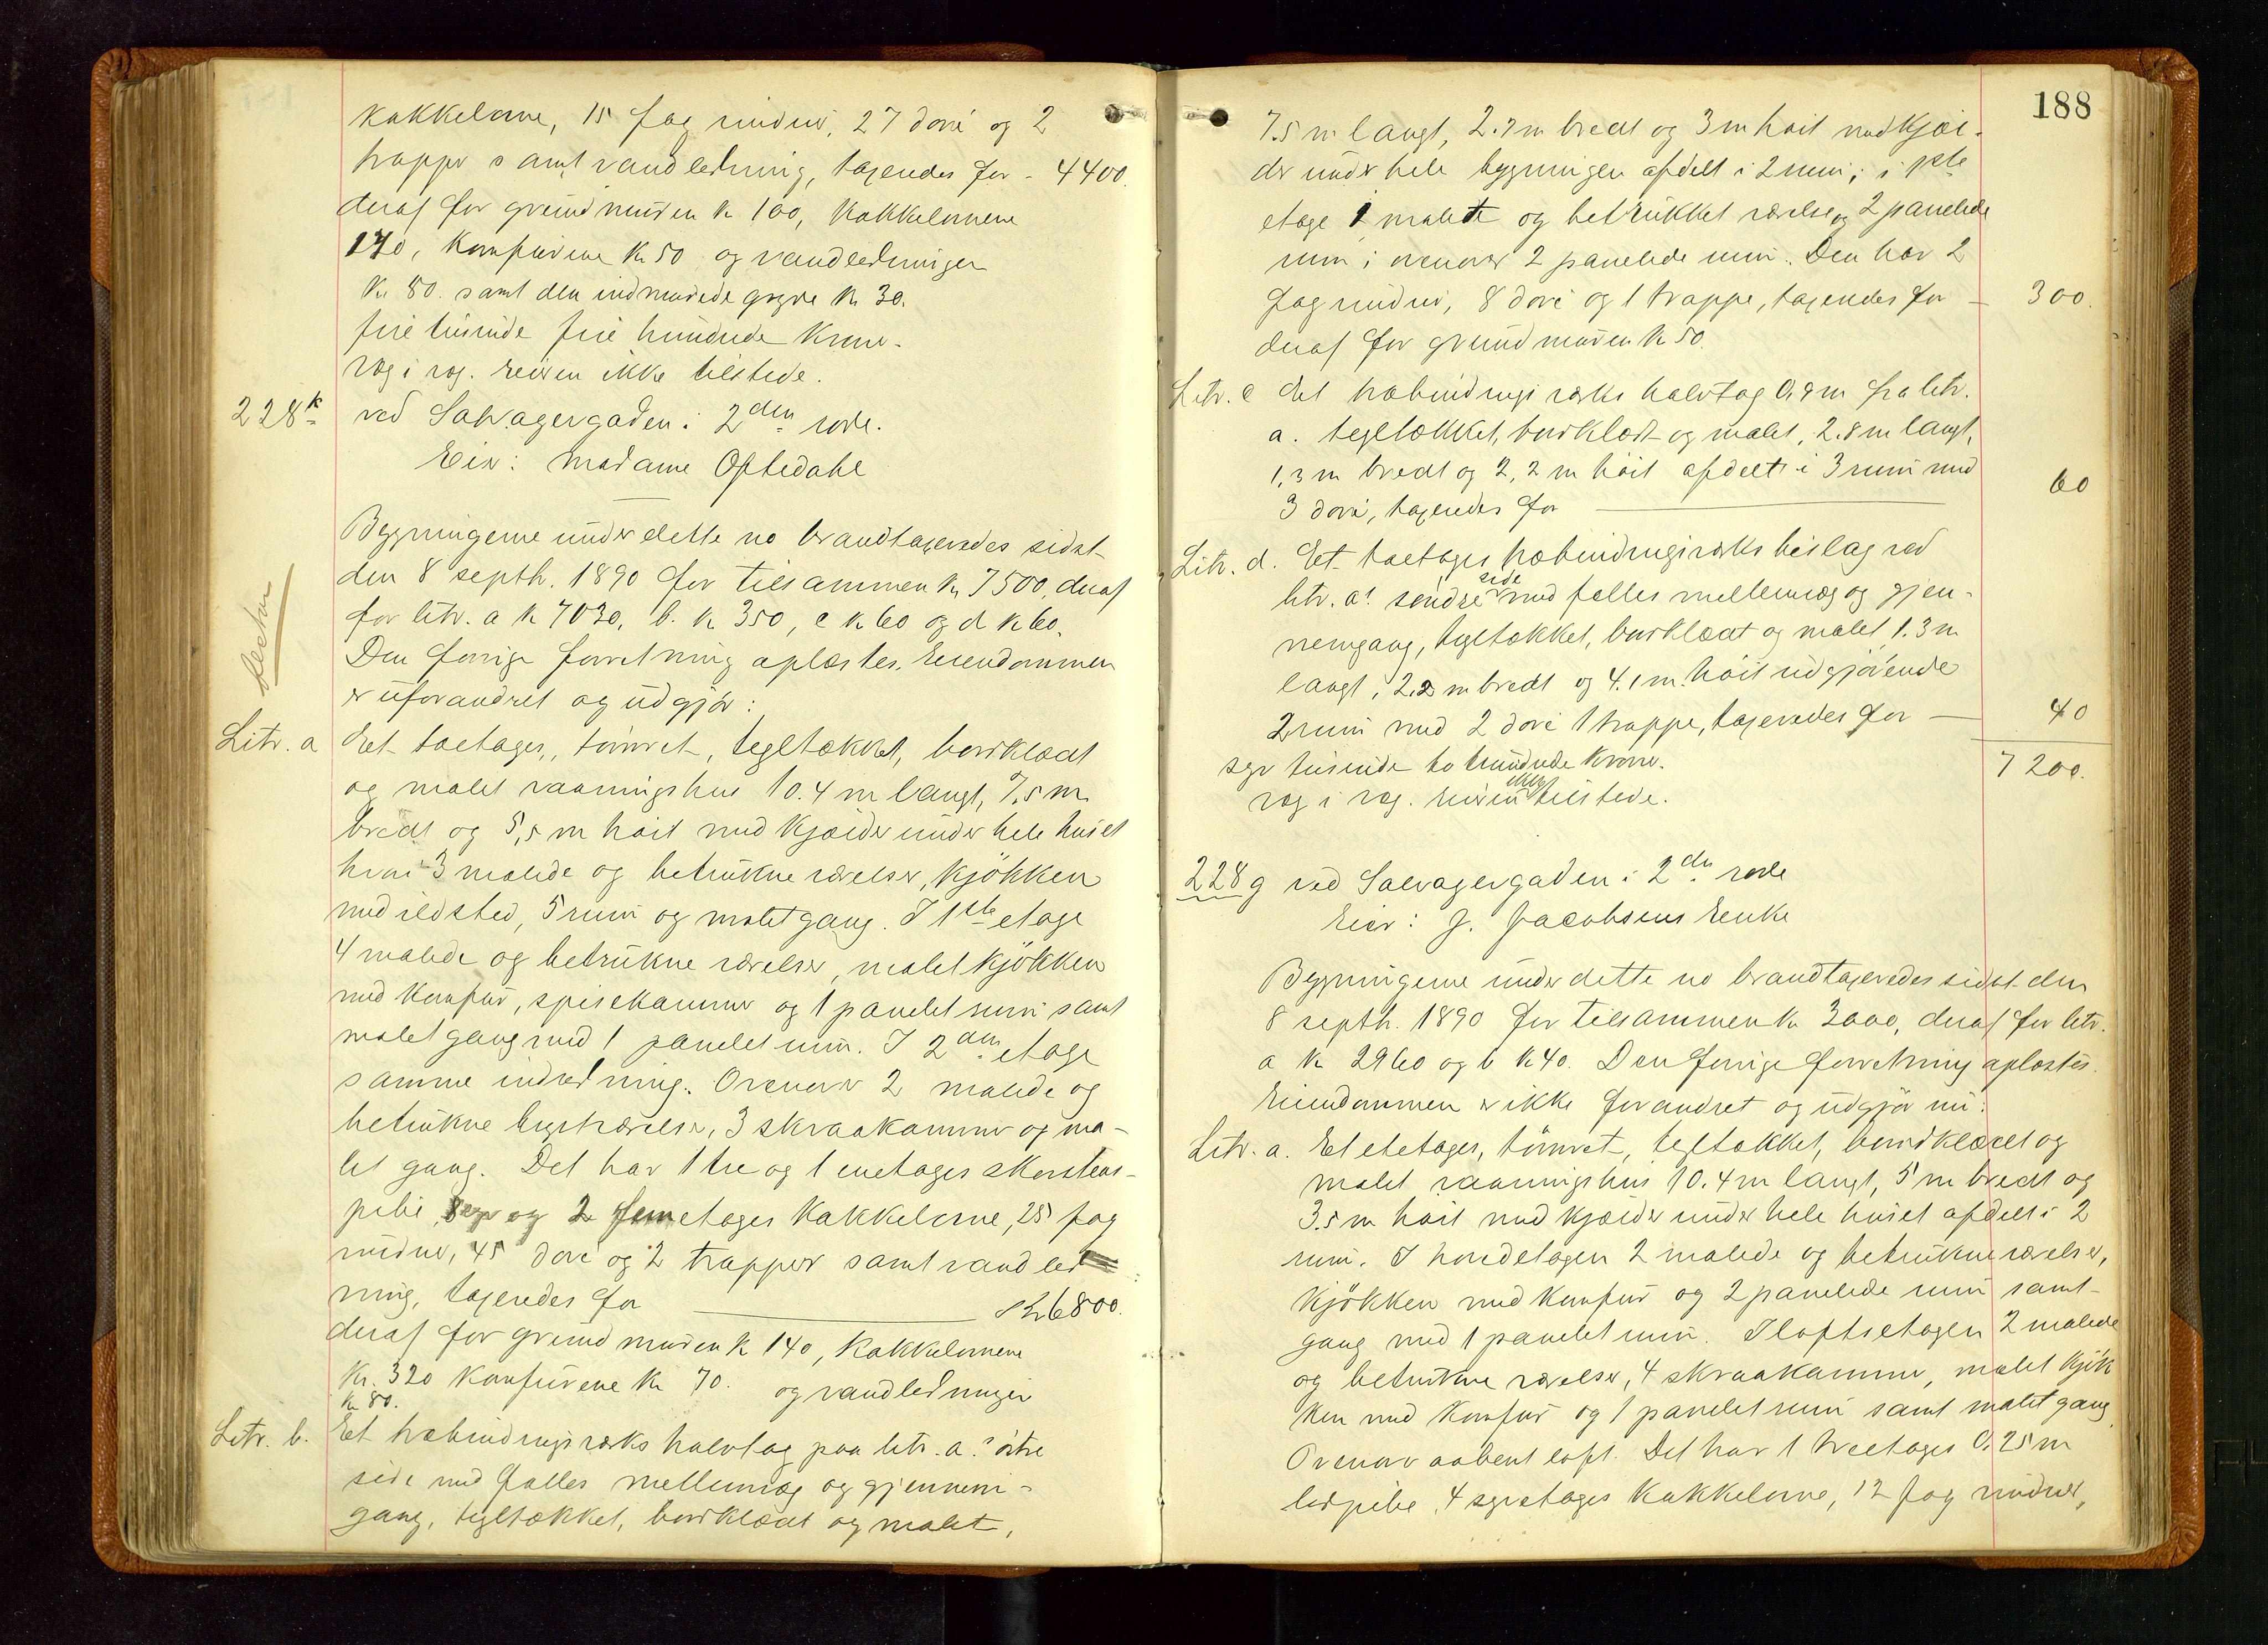 kakkelovne, 15 fag vinduer, 27 döre og 2
trapper samt vandledning, taxeredes for - 4400.
deraf for grundmuren k 100, kakkelovnene
170, komfurene k. 50 og vandledningen
kr. 80. samt den indmurede gryde kr 30.
fire tusinde fire hundrede kroner.
væg i væg. Eieren ikke tilstede.
228k ved Salvagergaden i 2den rode.
Eier: Madame Oftedahl
Bygningerne under dette no brandtaxeredes sidst
den 8 septbr. 1890 for tilsammen kr. 7500, deraf
for litr. a k 7030, b. k 350, c k 60 og d k 60.
Den forrige forretning oplæstes. Eiendommen
er uforandret og udgjör:
Litr. a Et toetages, tömret, tegltækket, bordklædt
og malet vaaningshus 10.4 m langt, 7,5 m
bredt og 5,5 m höit med kjælder under hele huset
hvori 3 malede og betrukne værelser, kjökken
med ildsted, 5 rum og malet gang. I 1ste etage
4 malede og betrukne værelser, malet kjökken
med komfur, spisekammer og 1 panelet rum samt
malet gang med 1 panelet rum. I 2den etage
samme indredning. Ovenover 2 malede og
betrukne værelser, 3 skraakammer og ma-
let gang. Det har 1 tre og 1 enetages skorstens-
pibe, og 2 femetages kakkelovne, 25 fag
vinduer, 45 döre og 2 trapper samt vandled
ning, taxeredes for kr 6800.
deraf for grundmuren k 140, kakkelovnene
kr. 320 komfurene kr 70. og vandledningen
kr 80.
Litr. b. Et træbindingsværks halvtag paa litr. a's östre
side med fælles mellemvæg og gjennem-
gang, tegltækket, bordklædt og malet,
188
7.5 m langt, 2.7 m bredt og 3 m höit med kjæl-
der under hele bygningen afdelt i 2 rum; i 1ste
etage 1 malet og betrukket værelse og 2 panelede
rum i ovenover 2 panelede rum. Den har 2
fag vinduer, 8 döre og 1 trappe, taxeredes for - 300.
deraf for grundmuren k 50.
Litr. c Et træbindingsværks halvtag 0.9 m fra litr.
a. tegltækket, bordklædt og malet, 2.8 m langt,
1,3 m bredt og 2,2 m höit afdelt i 3 rum med
3 döre, taxeredes for 60
Litr. d. Et toetages træbindingsværks bislag ved
litr. a's söndre side med fælles mellemvæg og gjen-
nemgang, tegltækket, bordklædt og malet 1.3 m
langt, 2.2 m bredt og 4.1 m. höit udgjörende
2 rum med 2 döre 1 trappe, taxeredes for - 40
syv tusinde to hundrede kroner. 7200.
væg i væg. Eieren ikke tilstede.
228g ved Salvagergaden i 2den rode
Eier: J. Jacobsens Enke
Bygningerne under dette no brandtaxeredes sidst den
8 septbr. 1890 for tilsammen k. 3000, deraf for litr.
a k 2960 og b k 40. Den forrige forretning oplæstes.
Eiendommen er ikke forandret og udgjör nu:
Litr. a. Et etetages, tömret, tegltækket, bordklædt og
malet vaaningshus 10.4 m langt, 5 m bredt og
3.5 m höit med kjælder under hele huset afdelt i 2
rum. I hovedetagen 2 malede og betrukne værelser,
kjökken med komfur og 2 panelede rum samt
gang med 1 panelet rum. I loftsetagen 2 malede
og betrukne værelser, 4 skraakammer, malet kjök
ken med komfur og 1 panelet rum samt malet gang.
Ovenover aabent loft. Det har 1 treetages 0.25 m
ledpibe, 4 syvetages kakkelovne, 12 fag vinduer,